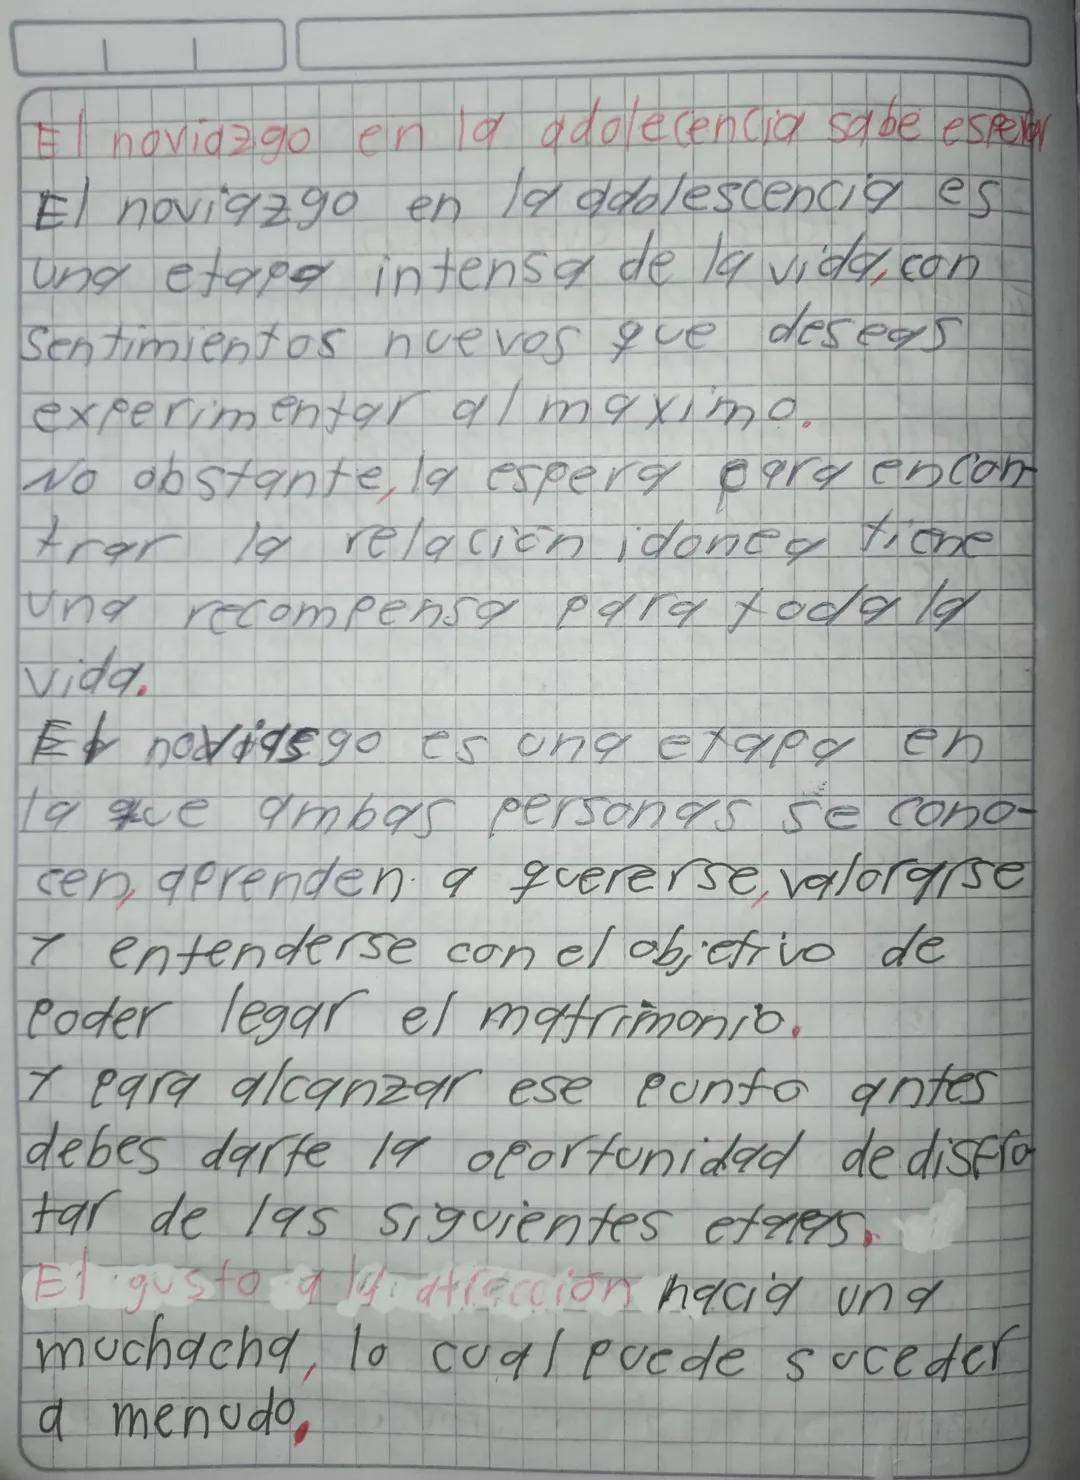 El noviazgo en la adolecencia sabe esperar
El noviazgo en la adolescencia es
una etapa intensa de la vida, con
sentimientos nuevos que deseas
experimentar al maximo.
No obstante, la espera para encon
trar la relación idonea tiene
una recompensa para toda la
vida.
El noviasgo es una etapa en
la que ambas personas se cono-
cen, aprenden a quererse, valorarse
Y entenderse con el objetivo de
Poder legar el matrimonio.
Y para alcanzar ese punto antes
debes darte la oportunidad de disfru
tar de las siguientes etapas.
El gusto a la atracción hacia una
muchacha, lo cual puede suceder
a menudo.